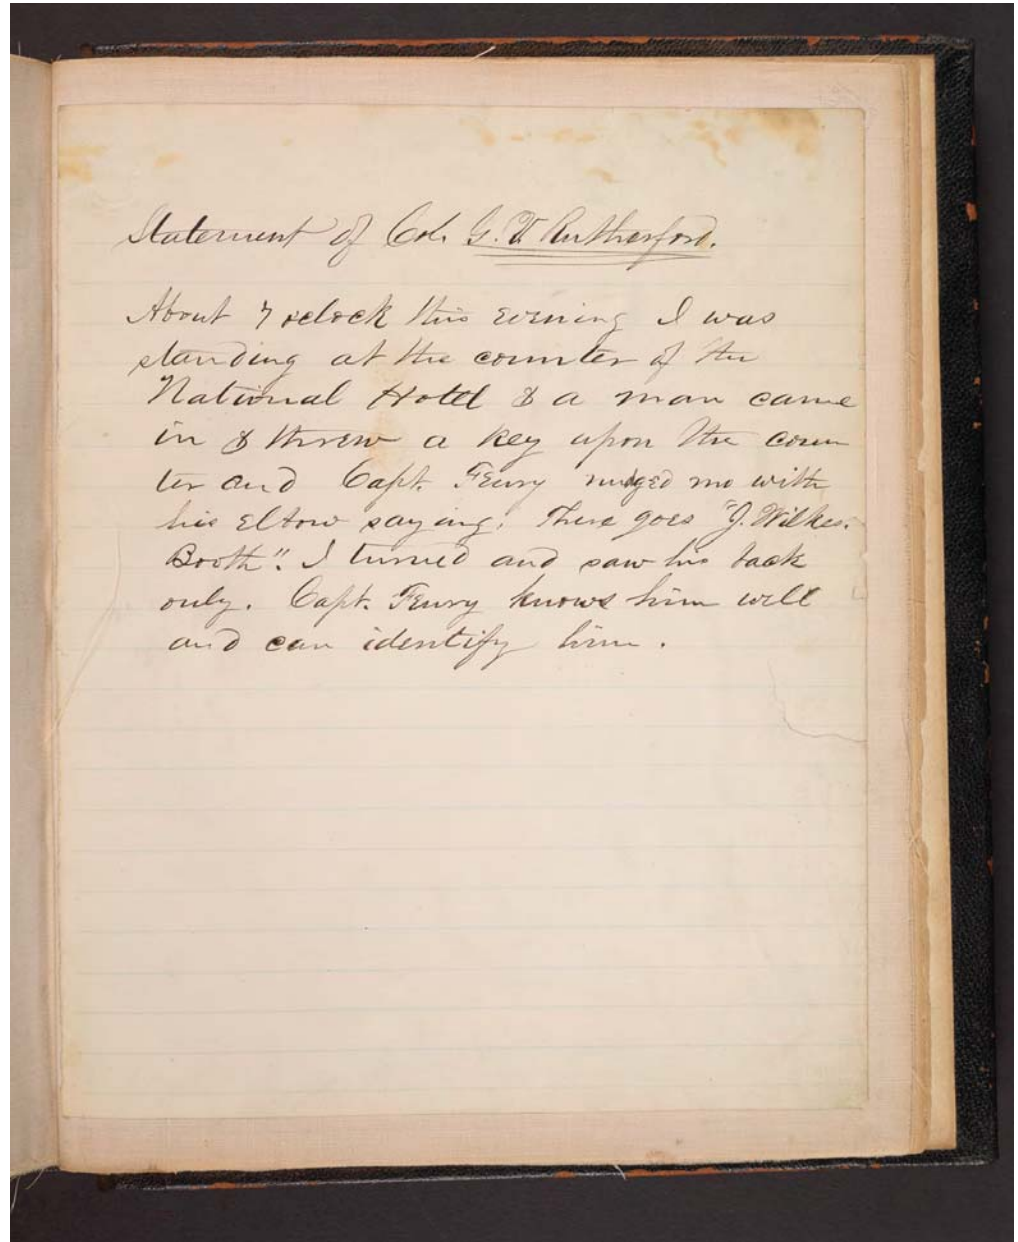 Statement of Col. G. V Rutherford.
About 7 oclock this evening I was
standing at the counter of the
National Hotel & a man came
in & threw a key upon the coun
ter and Capt. nudged me with
his elbow saying. There goes "J. Wilkes.
Booth". I turned and saw his back
only. Capt. knows him well
and can identify him.